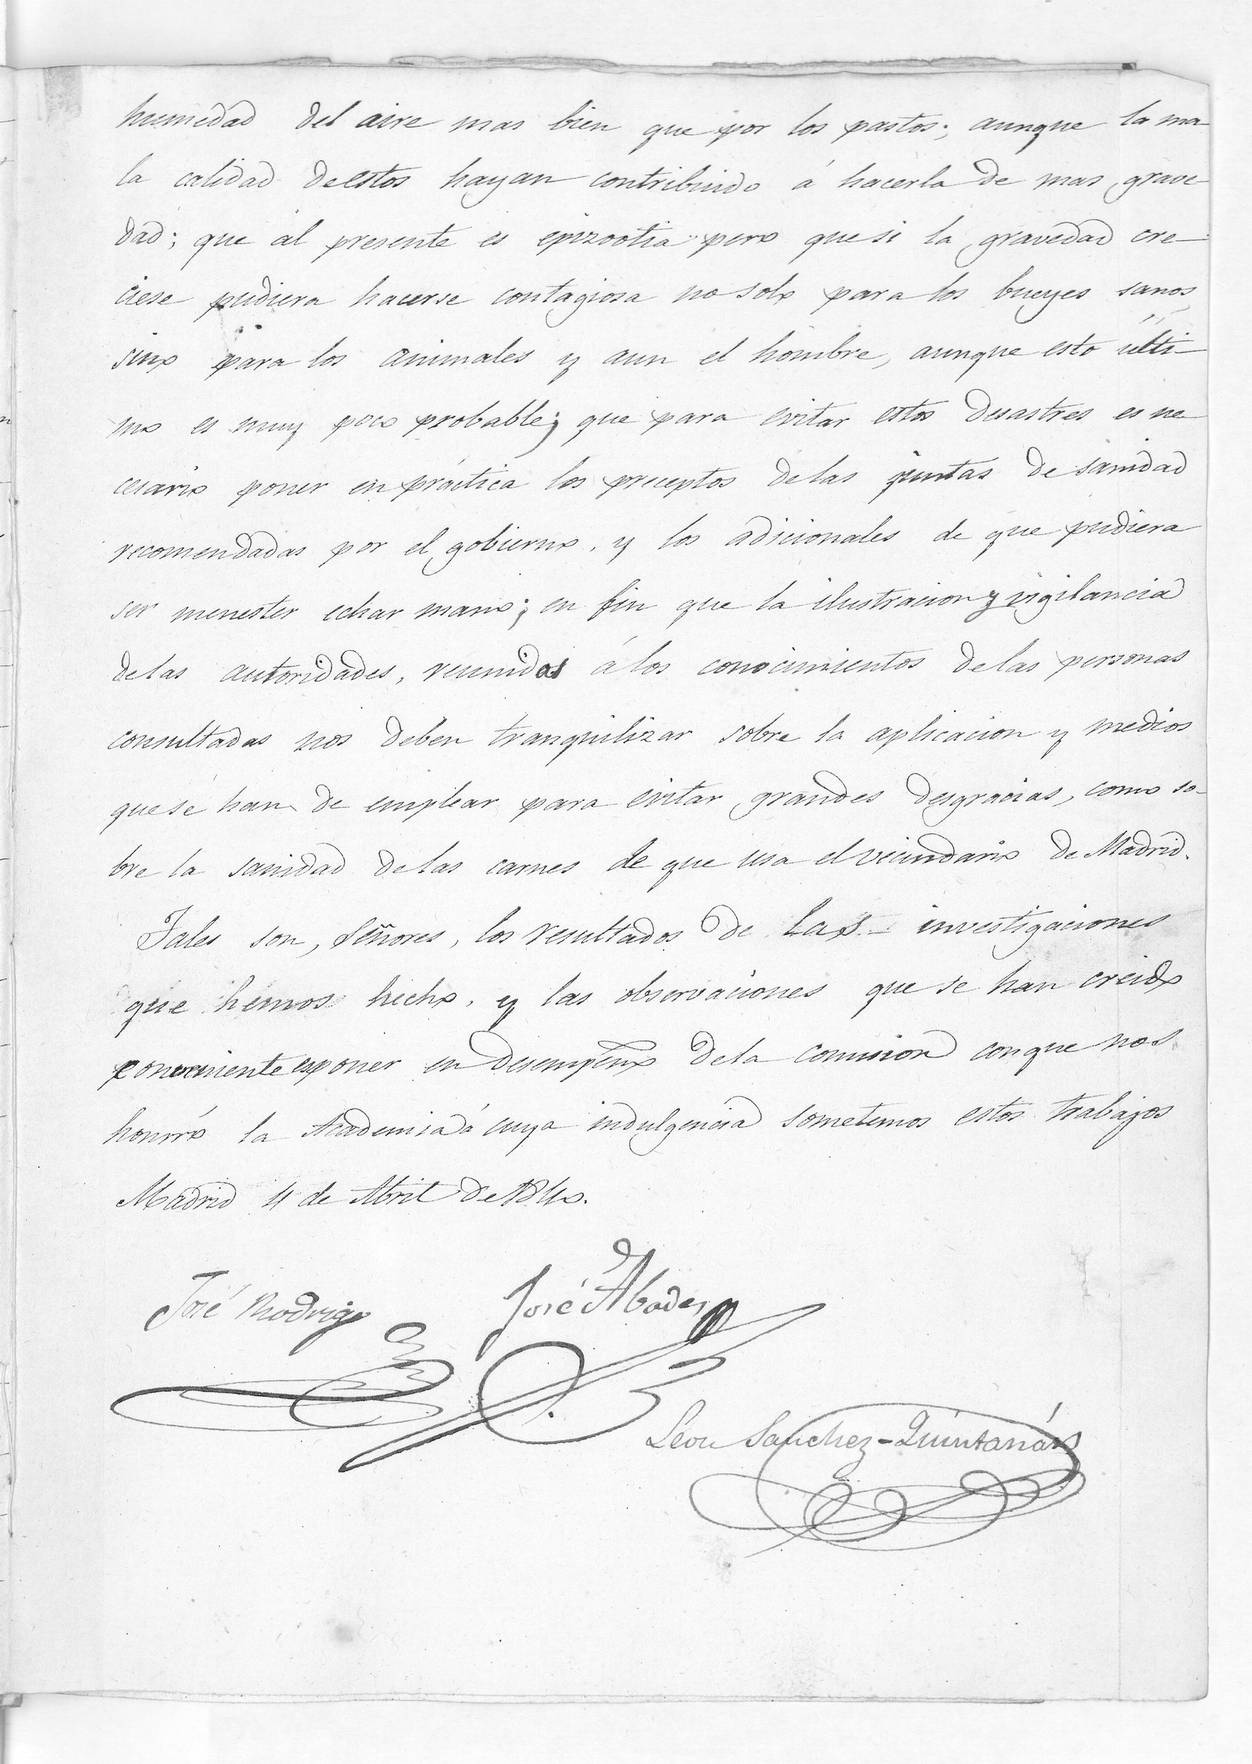 humedad del aire mas bien que por los pastos; aunque la ma
la calidad de estos hayan contribuido á hacerla de mas grave
dad; que al presente es epizootia pero que si la gravedad cre-
ciese pudiera hacerse contagiosa no solo para los bueyes sanos,
sino para los animales y aun el hombre, aunque esto ulti-
mo es muy poco probable; que para evitar estos desastres es ne
cesario poner en práctica los preceptos de las juntas de sanidad
recomendadas por el gobierno, y los adicionales de que pudiera
ser menester echar mano; en fin que la ilustracion y vigilancia
de las autoridades, reunidas á los conocimientos de las personas
consultadas nos deben tranquilizar sobre la aplicacion y medios
que se han de emplear para evitar grandes desgracias, como so-
bre la sanidad de las carnes de que usa el vecindario de Madrid.
Tales son, Señores, los resultados de las investigaciones
que hemos hecho, y las observaciones que se han creido
conveniente esponer en desempeño de la comision con que nos
honrró la Academia á cuya indulgencia sometemos estos trabajos
Madrid 4 de Abril de 1840.
José Rodrigo José Abades
Leon Sanchez-Quintanár